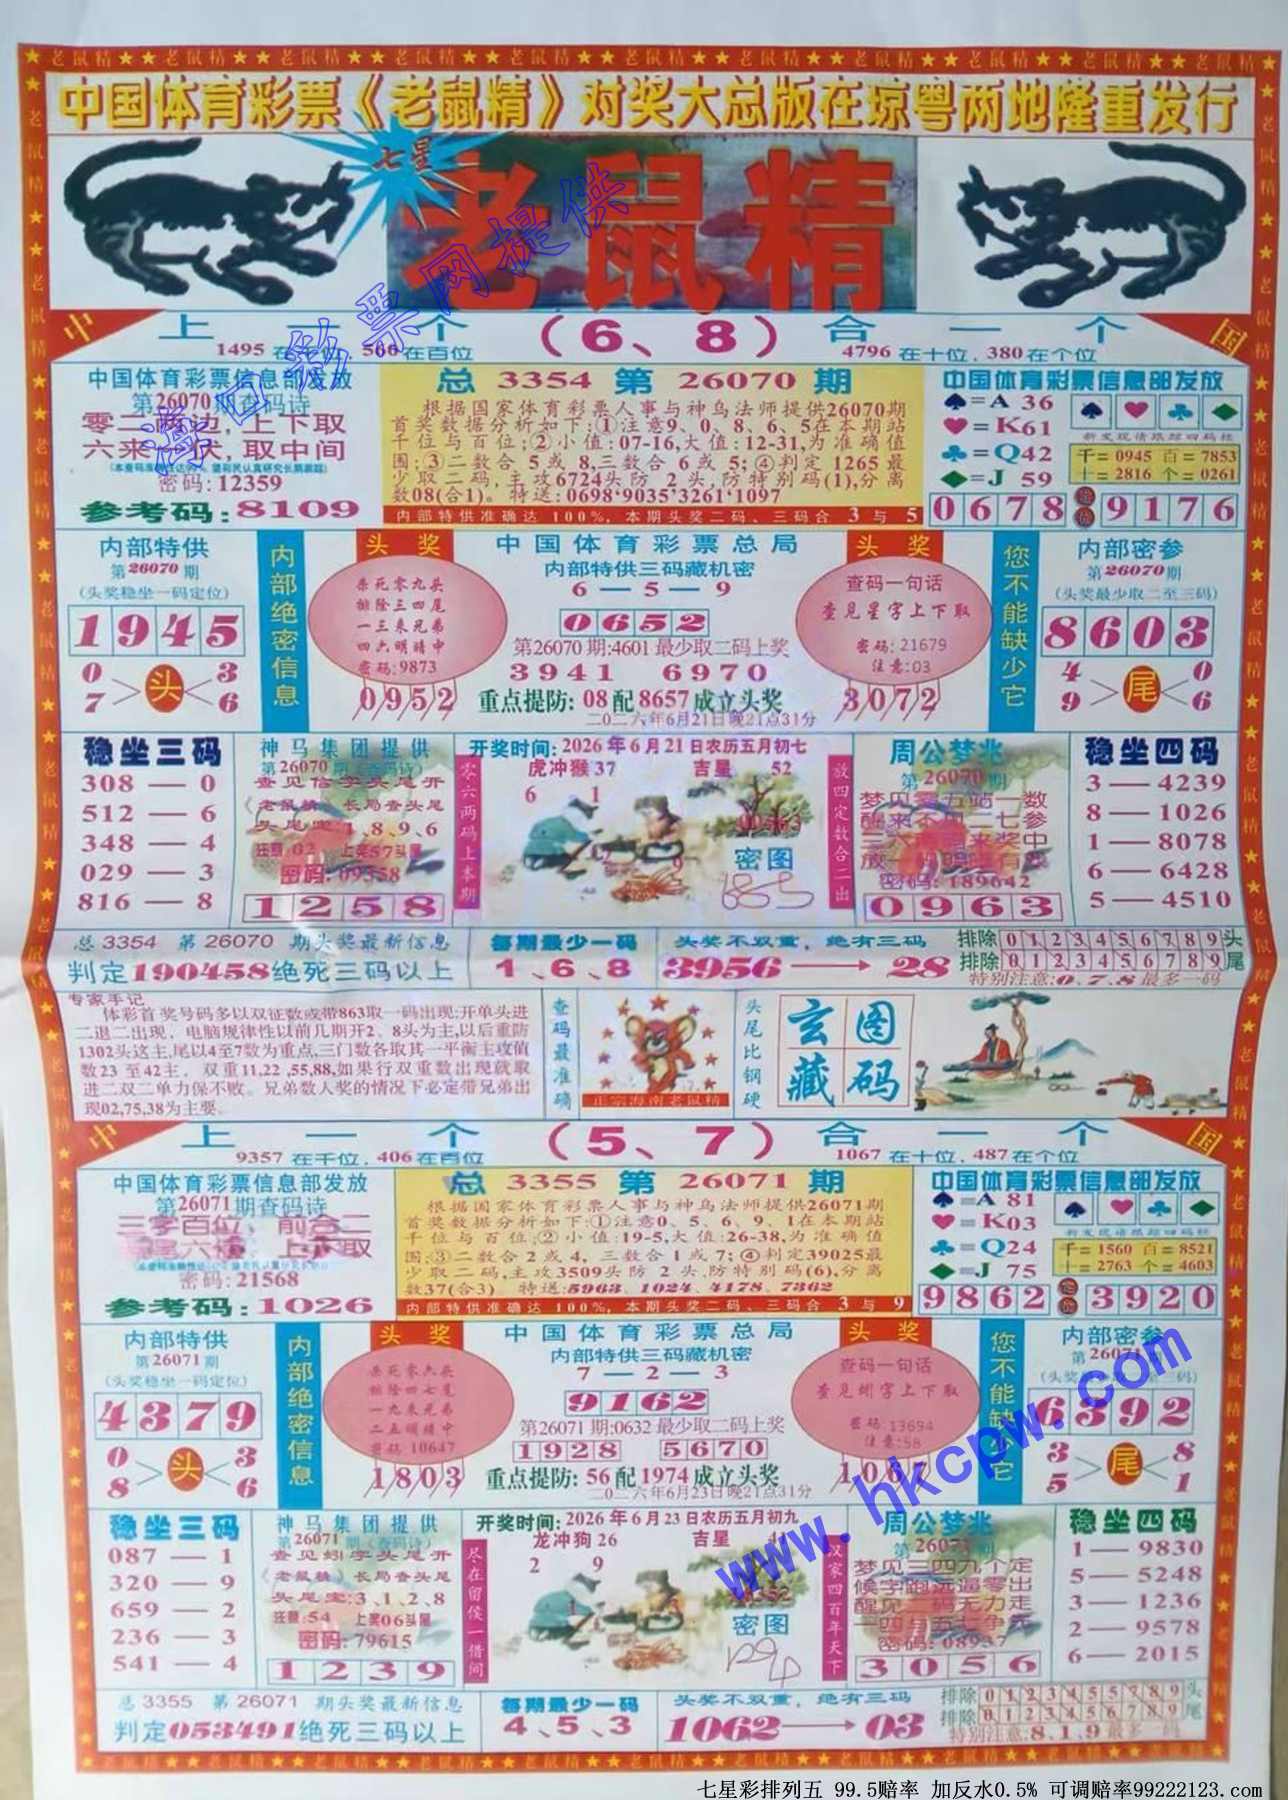 中国体育彩票《老鼠精》对奖大总版在琼粤两地隆重发行
七星
老鼠精
海口彩票网提供
中
上一个(6、8)合一个
国
1495在千位,506在百位
4796在十位,380在个位
中国体育彩票信息部发放
第26070期查码诗
零二两边,上下取
密码:12359
参考码:8109
总3354第26070期
根据国家体育彩票人事与神乌法师提供26070期
首奖数据分析如下:①注意9、0、8、6、5在本期站
千位与百位;②小值:07-16,大值:12-31,为准确值
围;③二数合5或8,三数合6或5;④判定1265最
少取二码,主攻6724头防2头,防特别码(1),分离
数08(合1)。特送:0698*9035*3261*1097
内部特供准确达100%,本期头奖二码、三码合3与5
中国体育彩票信息部发放
♠=A 36
♥=K61
♣=Q42
♦=J 59
千=0945 百=7853
十=2816 个=0261
0678
9176
内部特供
第26070期
(头奖稳坐一码定位)
1945
0 3
头
7 6
内部绝密信息
头奖
杀死零九头
排除三四尾
一三来兄弟
四六明睛中
密码:9873
0952
中国体育彩票总局
内部特供三码藏机密
6—5—9
0652
第26070期:4601最少取二码上奖
3941 6970
重点提防:08配8657成立头奖
二〇二六年6月21日晚21点31分
头奖
查码一句话
查见星字上下取
密码:21679
注意:03
3072
您不能缺少它
内部密参
第26070期
(头奖最少取二至三码)
8603
4 0
尾
9 6
稳坐三码
308—0
512—6
348—4
029—3
816—8
神马集团提供
第26070期(查码诗)
查见信字头尾开
(老鼠精)长局查头尾
头尾宝:1、8、9、6
狂意:02 上奖57头尾
密码:09358
1258
零六两码上本期
开奖时间:2026年6月21日农历五月初七
虎冲猴37 吉星 52
6 1
密图
放四定数合二出
周公梦兆
第26070期
梦见零五站一数
密码:189642
0963
稳坐四码
3—4239
8—1026
1—8078
6—6428
5—4510
总3354 第26070 期头奖最新信息
判定190458绝死三码以上
每期最少一码
1、6、8
头奖不双重,绝有三码
3956→28
排除0123456789头
排除0123456789尾
特别注意:0、7、8最多一码
专家手记
体彩首奖号码多以双征数或带863取一码出现;开单头进
二退二出现,电脑规律性以前几期开2、8头为主,以后重防
1302头这主,尾以4至7数为重点,三门数各取其一平衡主攻值
数23至42主,双重11,22,55,88,如果行双重数出现就取
进二双二单力保不败。兄弟数人奖的情况下必定带兄弟出
现02,75,38为主要。
查码最准确
正宗海南老鼠精
头尾比钢硬
玄图藏码
中
上一个(5、7)合一个
国
9357在千位,406在百位
1067在十位,487在个位
中国体育彩票信息部发放
第26071期查码诗
密码:21568
参考码:1026
总3355第26071期
根据国家体育彩票人事与神乌法师提供26071期
首奖数据分析如下:①注意0、5、6、9、1在本期站
千位与百位;②小值:19-5,大值:26-38,为准确值
围;③二数合2或4,三数合1或7;④判定39025最
少取二码,主攻3509头防2头,防特别码(6),分离
数37(合3) 特送:5963、1024、4178、7362
内部特供准确达100%,本期头奖二码、三码合3与9
中国体育彩票信息部发放
♠=A 81
♥=K03
♣=Q24
♦=J 75
千=1560 百=8521
十=2763 个=4603
9862
3920
内部特供
第26071期
(头奖稳坐一码定位)
4379
0 3
头
8 6
内部绝密信息
头奖
杀死零六头
排除四七尾
一九来兄弟
二五明睛中
密码:10647
1803
中国体育彩票总局
内部特供三码藏机密
7—2—3
9162
第26071期:0632最少取二码上奖
1928 5670
重点提防:56配1974成立头奖
二〇二六年6月23日晚21点31分
头奖
查码一句话
查见蚓字上下取
密码:13694
注意:58
您不能缺少它
内部密参
第26071期
6392
3 8
尾
5 1
www.hkcpw.com
稳坐三码
087—1
320—9
659—2
236—3
541—4
神马集团提供
第26071期(查码诗)
查见蚓字头尾开
(老鼠精)长局查头尾
头尾宝:3、1、2、8
狂意:54 上奖06头尾
密码:79615
1239
尽在留侯一借间
开奖时间:2026年6月23日农历五月初九
龙冲狗26 吉星
2 9
密图
汉家四百年天下
周公梦兆
梦见三四九个定
密码:08937
3056
稳坐四码
1—9830
5—5248
3—1236
2—9578
6—2015
总3355 第26071 期头奖最新信息
判定053491绝死三码以上
每期最少一码
4、5、3
头奖不双重,绝有三码
1062→03
排除0123456789头
排除0123456789尾
特别注意:8、1、9最多一码
七星彩排列五 99.5赔率 加反水0.5% 可调赔率99222123.com